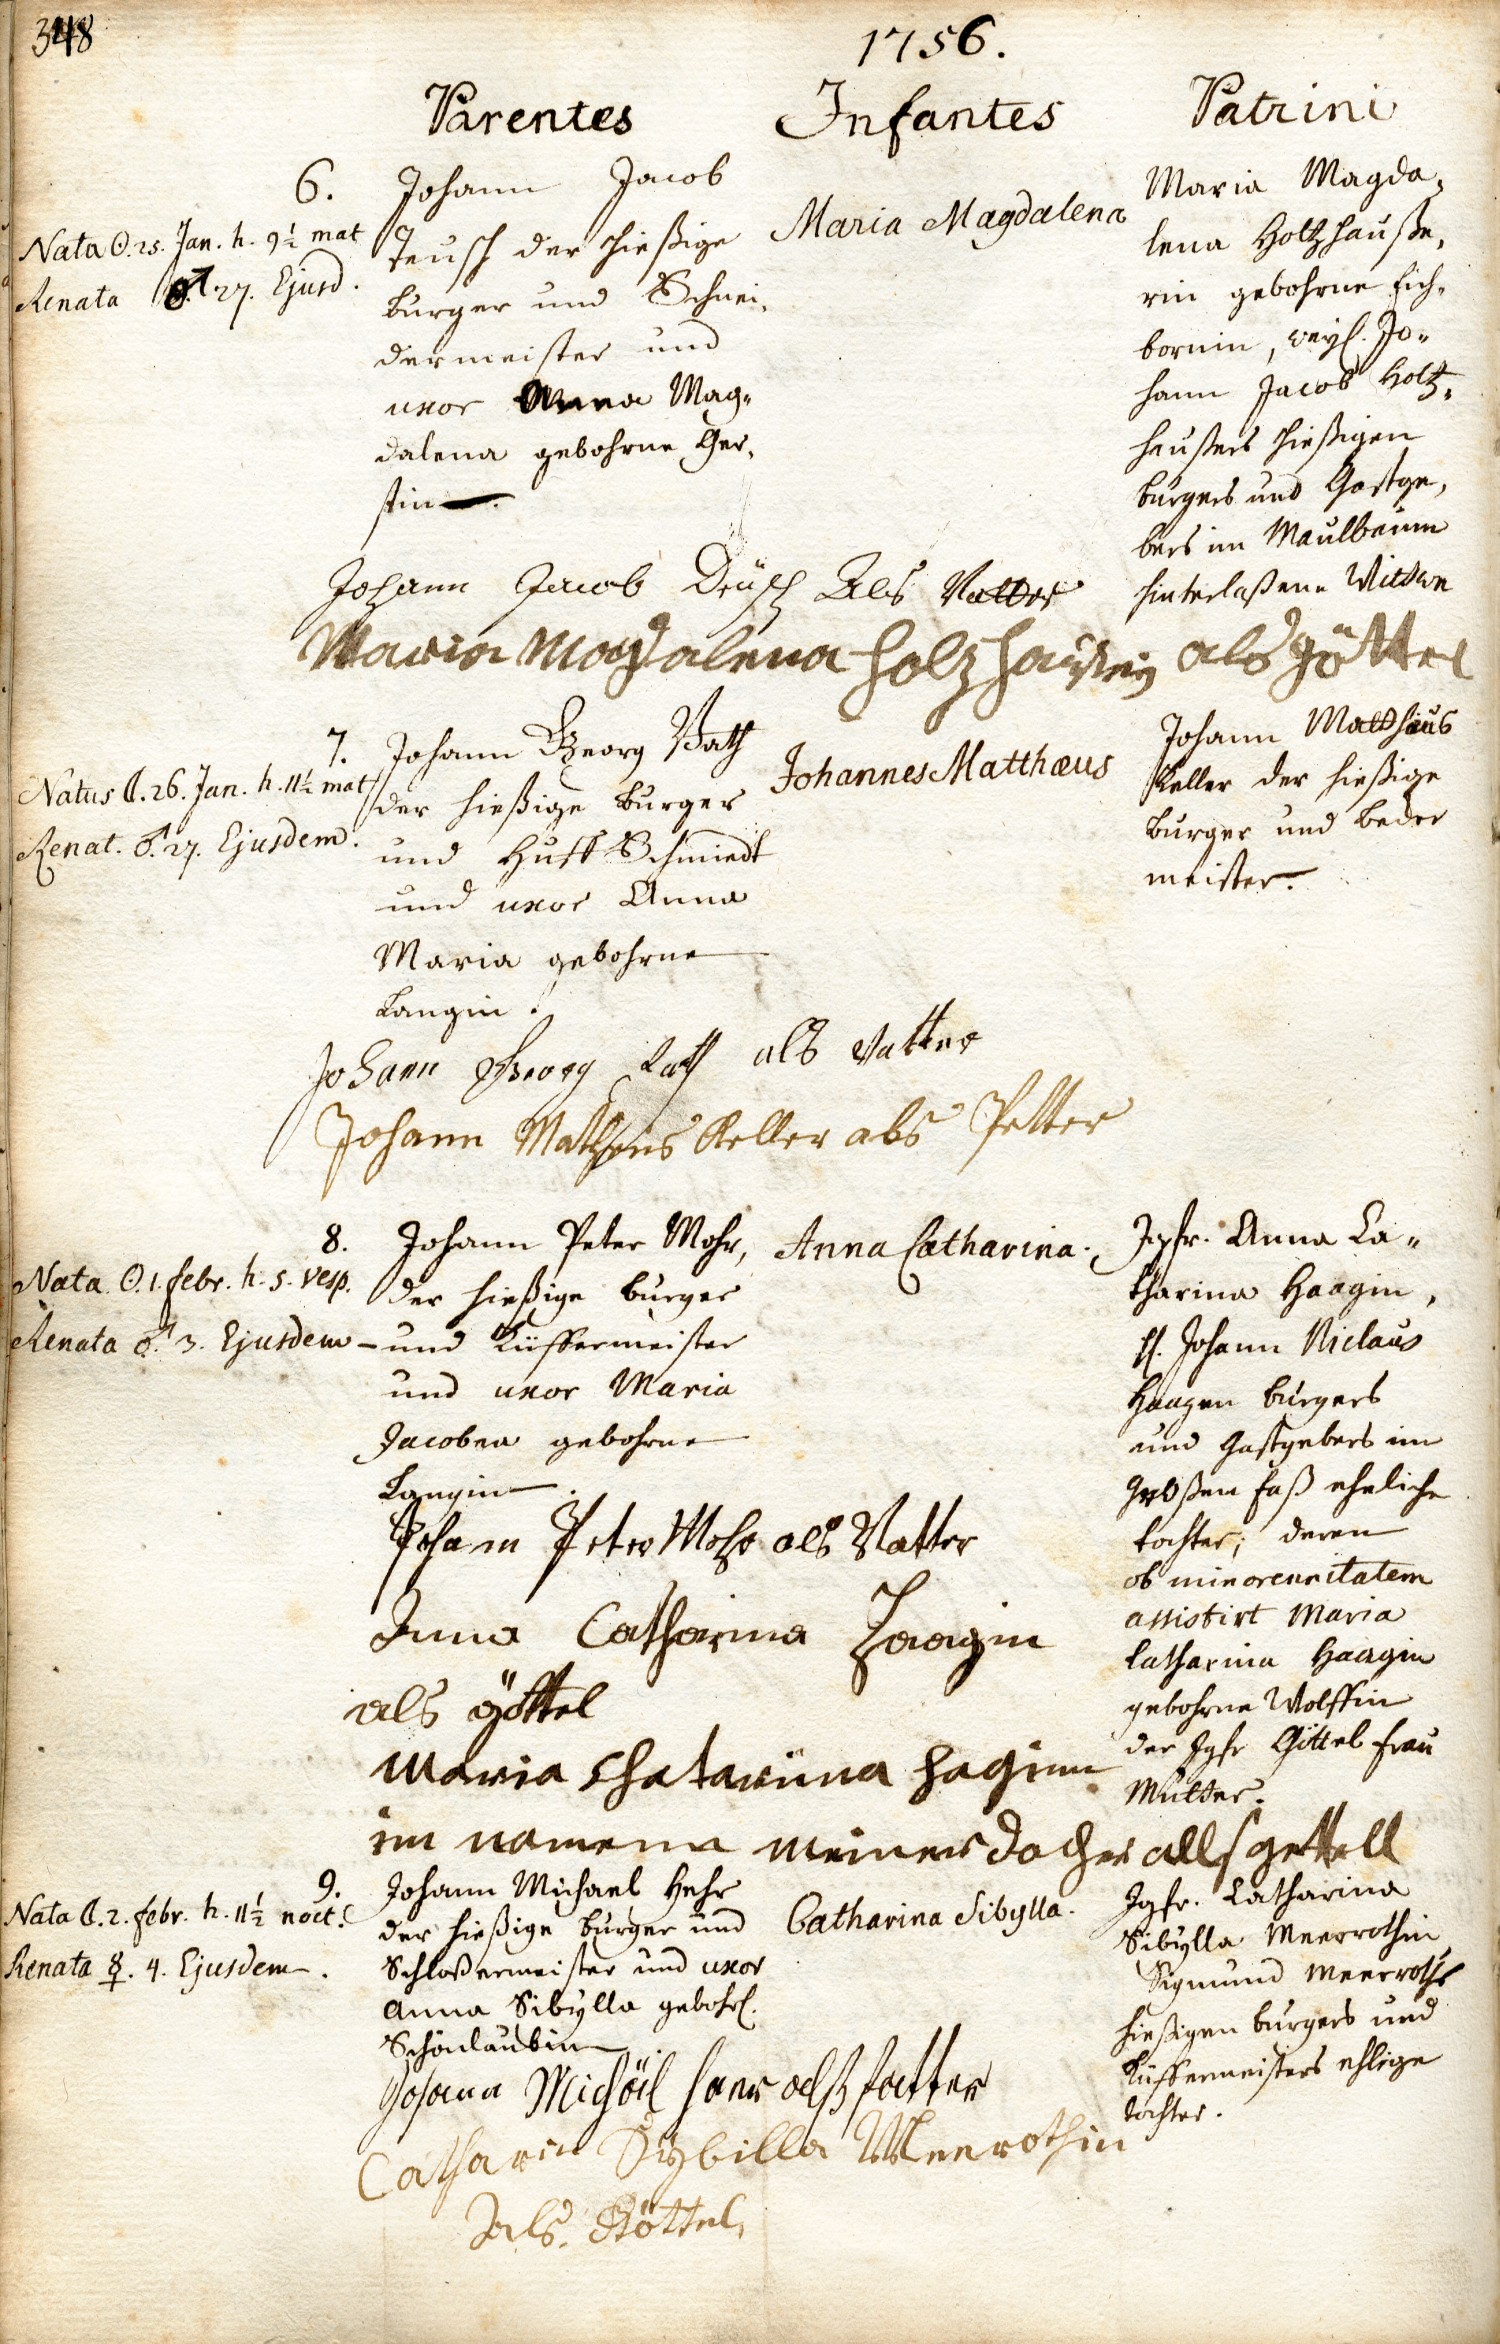 348
1756.
Parentes
Infantes
Patrini
6.
Nata ☉. 25. Jan. h. 9½ mat
Renata ♂. 27. Ejusd.
Johann Jacob
Teusch der hießige
burger und Schnei,
dermeister und
uxor Anna Mag„
dalena gebohrne Ger,
stin.
Maria Magdalena
Maria Magda,
lena Holtzhauße,
rin gebohrne Eich„
bornin, weyl. Jo„
hann Jacob Holtz,
haußers hießigen
burgers und Gastge,
bers im Maulbaum
hinterlaßene Wittwe
Johann Jacob Deusch Als Vatter
Maria Magdalena Holzhaußerin als götttel
7.
Natus ☾. 26. Jan. h. 11½ mat
Renat. ♂. 27. Ejusdem.
Johann Georg Bath
der hießige burger
und Huff Schmiedt
und uxor Anna
Maria gebohrne
Langin.
Johannes Matthæus
Johann Matthäus
Keller der hießige
burger und beder
meister.
Johann Georg als Vatter
Johann Mattheus Keller als Petter
8.
Nata ☉. 1. febr. h. 5. vesp.
Renata ♂. 3. Ejusdem
Johann Peter Mohr,
der hießige burger
und Küffermeister
und uxor Maria
Jacobea gebohrne
Langin.
Anna Catharina.
Jgfr. Anna Ca„
tharina Haagin,
H. Johann Niclaus
Haagen burgers
und Gastgebers im
Großen Faß eheliche
tochter; deren
ob minorennitatem
assistirt Maria
Catharina Haagin
gebohrne Wolffin
der Jgfr Göttel Frau
Mutter.
Johann Peter Mohr als Vatter
Anna Catharina Haagin
als göttel
Maria Chatariina Haginn
im namena meiner docher alls gettell
9.
Nata ☾. 2. febr. h. 11½ noct.
Renata ☿. 4. Ejusdem.
Johann Michael Hehr
der hießige burger und
Schloßermeister und uxor
Anna Sibylla gebohrl.
Schönlaubin
Catharina Sibylla.
Jgfr. Catharina
Sibylla Meerrothin
Sigmund Meerroths
hießigen burgers und
Küffermeisters ehlige
tochter.
Johann Michäil Haer alß fatter
Catharin Sÿbilla Meerothin
Als. Göttel,